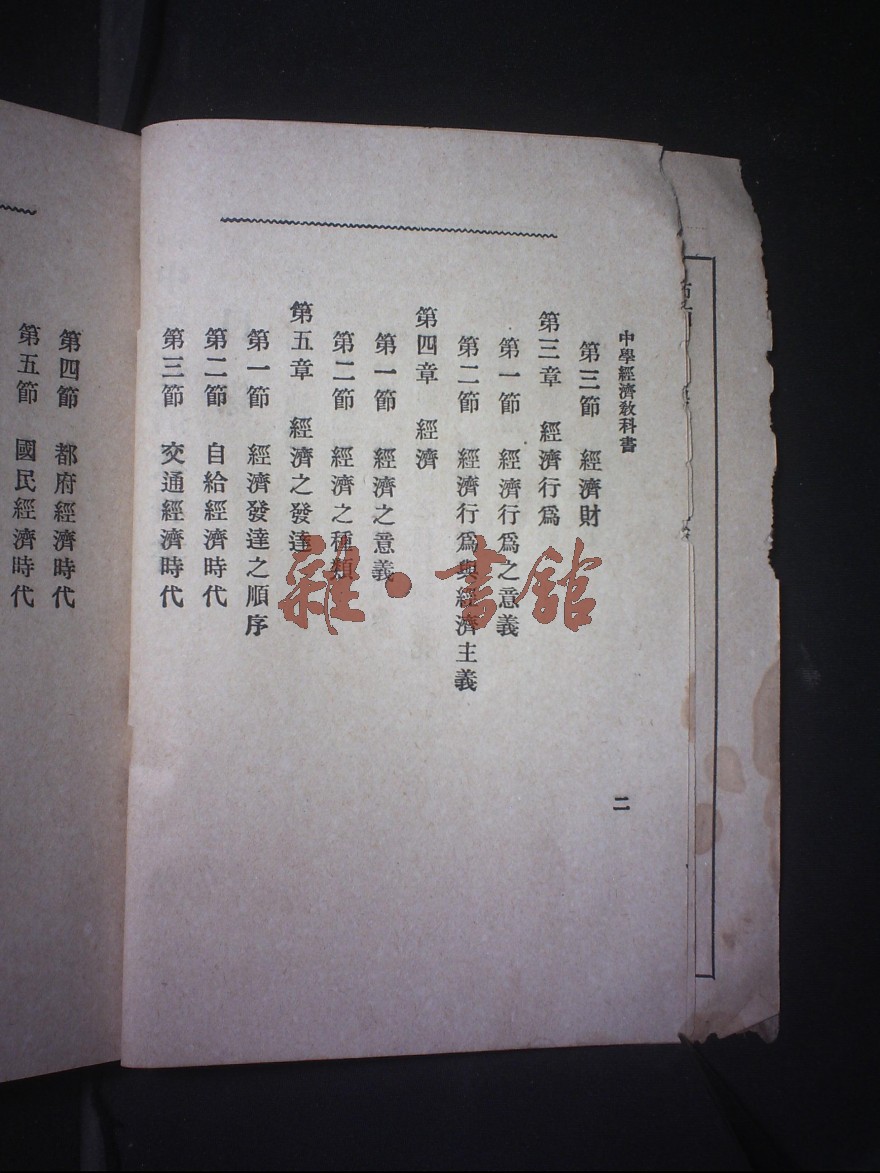 中學經濟教科書
二
第三節 經濟財
第三章 經濟行爲
第一節 經濟行爲之意義
第二節 經濟行爲與經濟主義
第四章 經濟
第一節 經濟之意義
第二節 經濟之種類
第五章 經濟之發達
第一節 經濟發達之順序
第二節 自給經濟時代
第三節 交通經濟時代
第四節 都府經濟時代
第五節 國民經濟時代
雜·書館